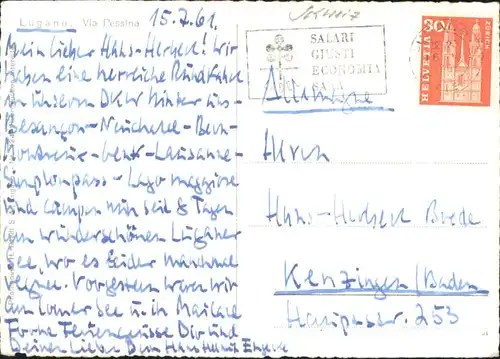 Lugano. Via Pessina
15.7.61.
Mein lieber Hans-Herbert! Wir
haben eine herrliche Rundfahrt
in unserm DKW hinter uns-
Besançon-Neuchatel-Bern-
Montreux-Genf-Lausanne-
Simplonpass-Lago maggiore
und campen nun seit 8 Tagen
am wunderschönen Luganer
See, wo es leider manchmal
regnet. Vorgestern waren wir
am Comer See u. in Mailand
Frohe Feriengrüsse Dir und
Deinen Lieben Dein Hans Helmut
Schweiz
SALARI
GIUSTI
ECONOMIA
SANA
30
HELVETIA
ZÜRICH
Allemagne
Herrn
Hans-Herbert Brede
Kenzingen/Baden
Hauptstr. 253